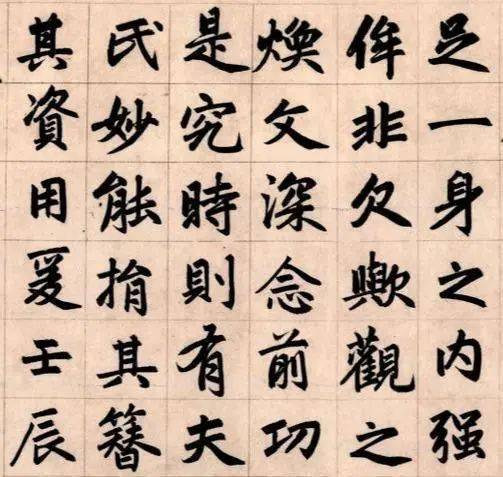 足一身之内强
侔非欠歟觀之
煥文深念前功
是究時則有夫
氏妙能捐其簪
其資用爰壬辰